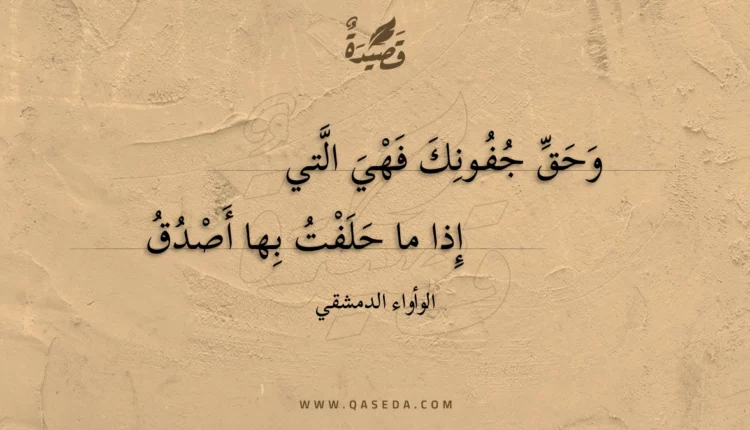 قَصِيدَةٌ
وَحَقِّ جُفُونِكَ فَهْيَ الَّتي
إِذا ما حَلَفْتُ بِها أَصْدُقُ
الوأواء الدمشقي
WWW.QASEDA.COM